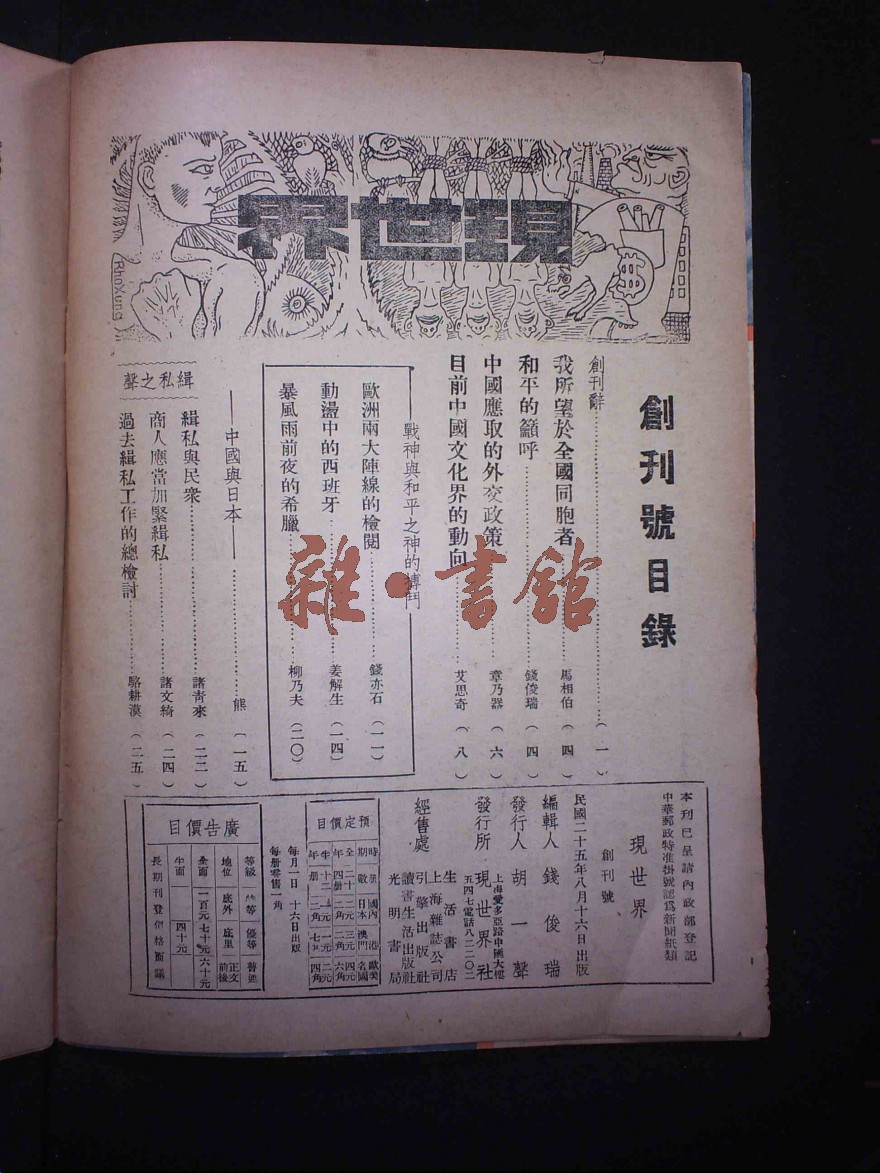 現世界
Rhoxung
創刊號目錄
創刊辭……(一)
我所望於全國同胞者……馬相伯(四)
和平的籲呼……錢俊瑞(四)
中國應取的外交政策……章乃器(六)
目前中國文化界的動向……艾思奇(八)
——戰神與和平之神的搏鬥——
歐洲兩大陣線的檢閱……錢亦石(一一)
動盪中的西班牙……姜解生(一四)
暴風雨前夜的希臘……柳乃夫(二〇)
——中國與日本——……熊(一五)
緝私之聲
緝私與民衆……諸青來(二二)
商人應當加緊緝私……諸文綺(二四)
過去緝私工作的總檢討……駱耕漠(二五)
本刊已呈請內政部登記
中華郵政特准掛號認爲新聞紙類
現世界
創刊號
民國二十五年八月十六日出版
編輯人 錢俊瑞
發行人 胡一聲
發行所 現世界社
上海愛多亞路中國大樓
五四七電話八二二〇二
經售處
生活書店
上海雜誌公司
引擎出版社
讀書生活出版社
光明書局
預定價目
時期 冊數 國內日本 港澳門 歐美各國
全年 二十四冊 二元二角 三元二角 四元六角
半年 十二冊 一元二角 一元七 二元四角
每月一日十六日出版
每冊零售一角
廣告價目
等級 特等 優等 普通
地位 底外 底里 正文前後
全面 一百元 七十元 六十元
半面 四十元
長期刊登價格面議
雜·書館